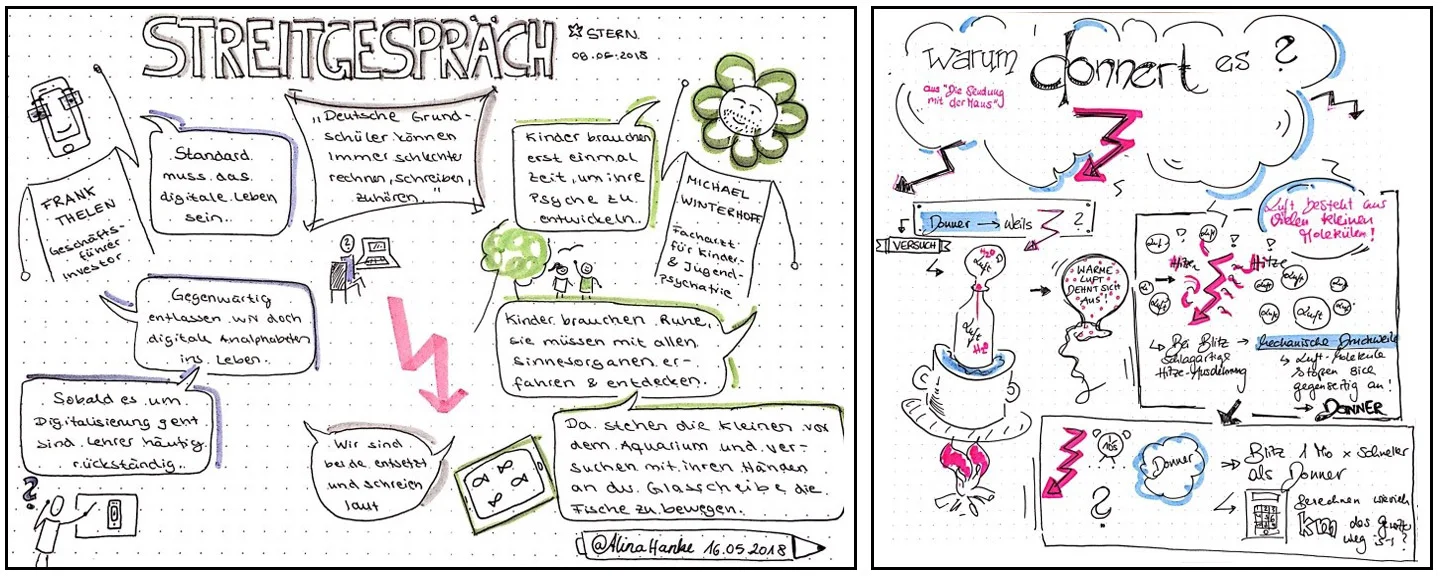 STREITGESPRÄCH
STERN
08.05.2018
FRANK
THELEN
Geschäfts-
führer
Investor
Standard
muss das
digitale Leben
sein..
„Deutsche Grund-
schüler können
immer schlechter
rechnen, schreiben,
zuhören."
Kinder brauchen
erst einmal
Zeit, um ihre
Psyche zu
entwickeln..
MICHAEL
WINTERHOFF
Facharzt
für Kinder-
& Jugend-
psychatrie
Gegenwärtig
entlassen wir doch
digitale Analphabeten
ins Leben.
Kinder brauchen Ruhe,
sie müssen mit allen
Sinnesorganen er-
fahren & entdecken.
Sobald es um
Digitalisierung geht
sind Lehrer häufig
rückständig..
?
Wir sind
beide entsetzt
und schreien
laut
Da stehen die Kleinen vor
dem Aquarium und ver-
suchen mit ihren Händen
an der Glasscheibe die
Fische zu bewegen.
@AlinaHanke 16.05.2018
warum donnert es?
aus "Die Sendung
mit der Maus"
Donner → weils ?
VERSUCH
H2O
Luft
Luft
WARME
LUFT
DEHNT SICH
AUS!
Luft besteht aus
vielen kleinen
Molekülen!
Luft Luft
Hitze Hitze
Luft Luft Luft
Luft Luft Luft
Bei Blitz → Mechanische Druckwelle
schlagartige
Hitze-Ausdehnung
Luft-Moleküle
stoßen sich
gegenseitig an!
→ DONNER
10s
Donner
?
⇒ Blitz 1 Mio x schneller
als Donner
Berechnen wieviel
km das Gewitter
weg ist!